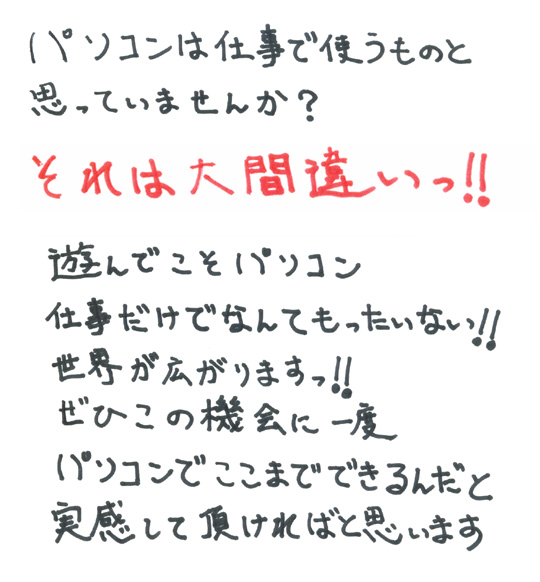 パソコンは仕事で使うものと
思っていませんか？
それは大間違いっ!!
遊んでこそパソコン
仕事だけでなんてもったいないっ!!
世界が広がりますっ!!
ぜひこの機会に一度
パソコンでここまでできるんだと
実感して頂ければと思います